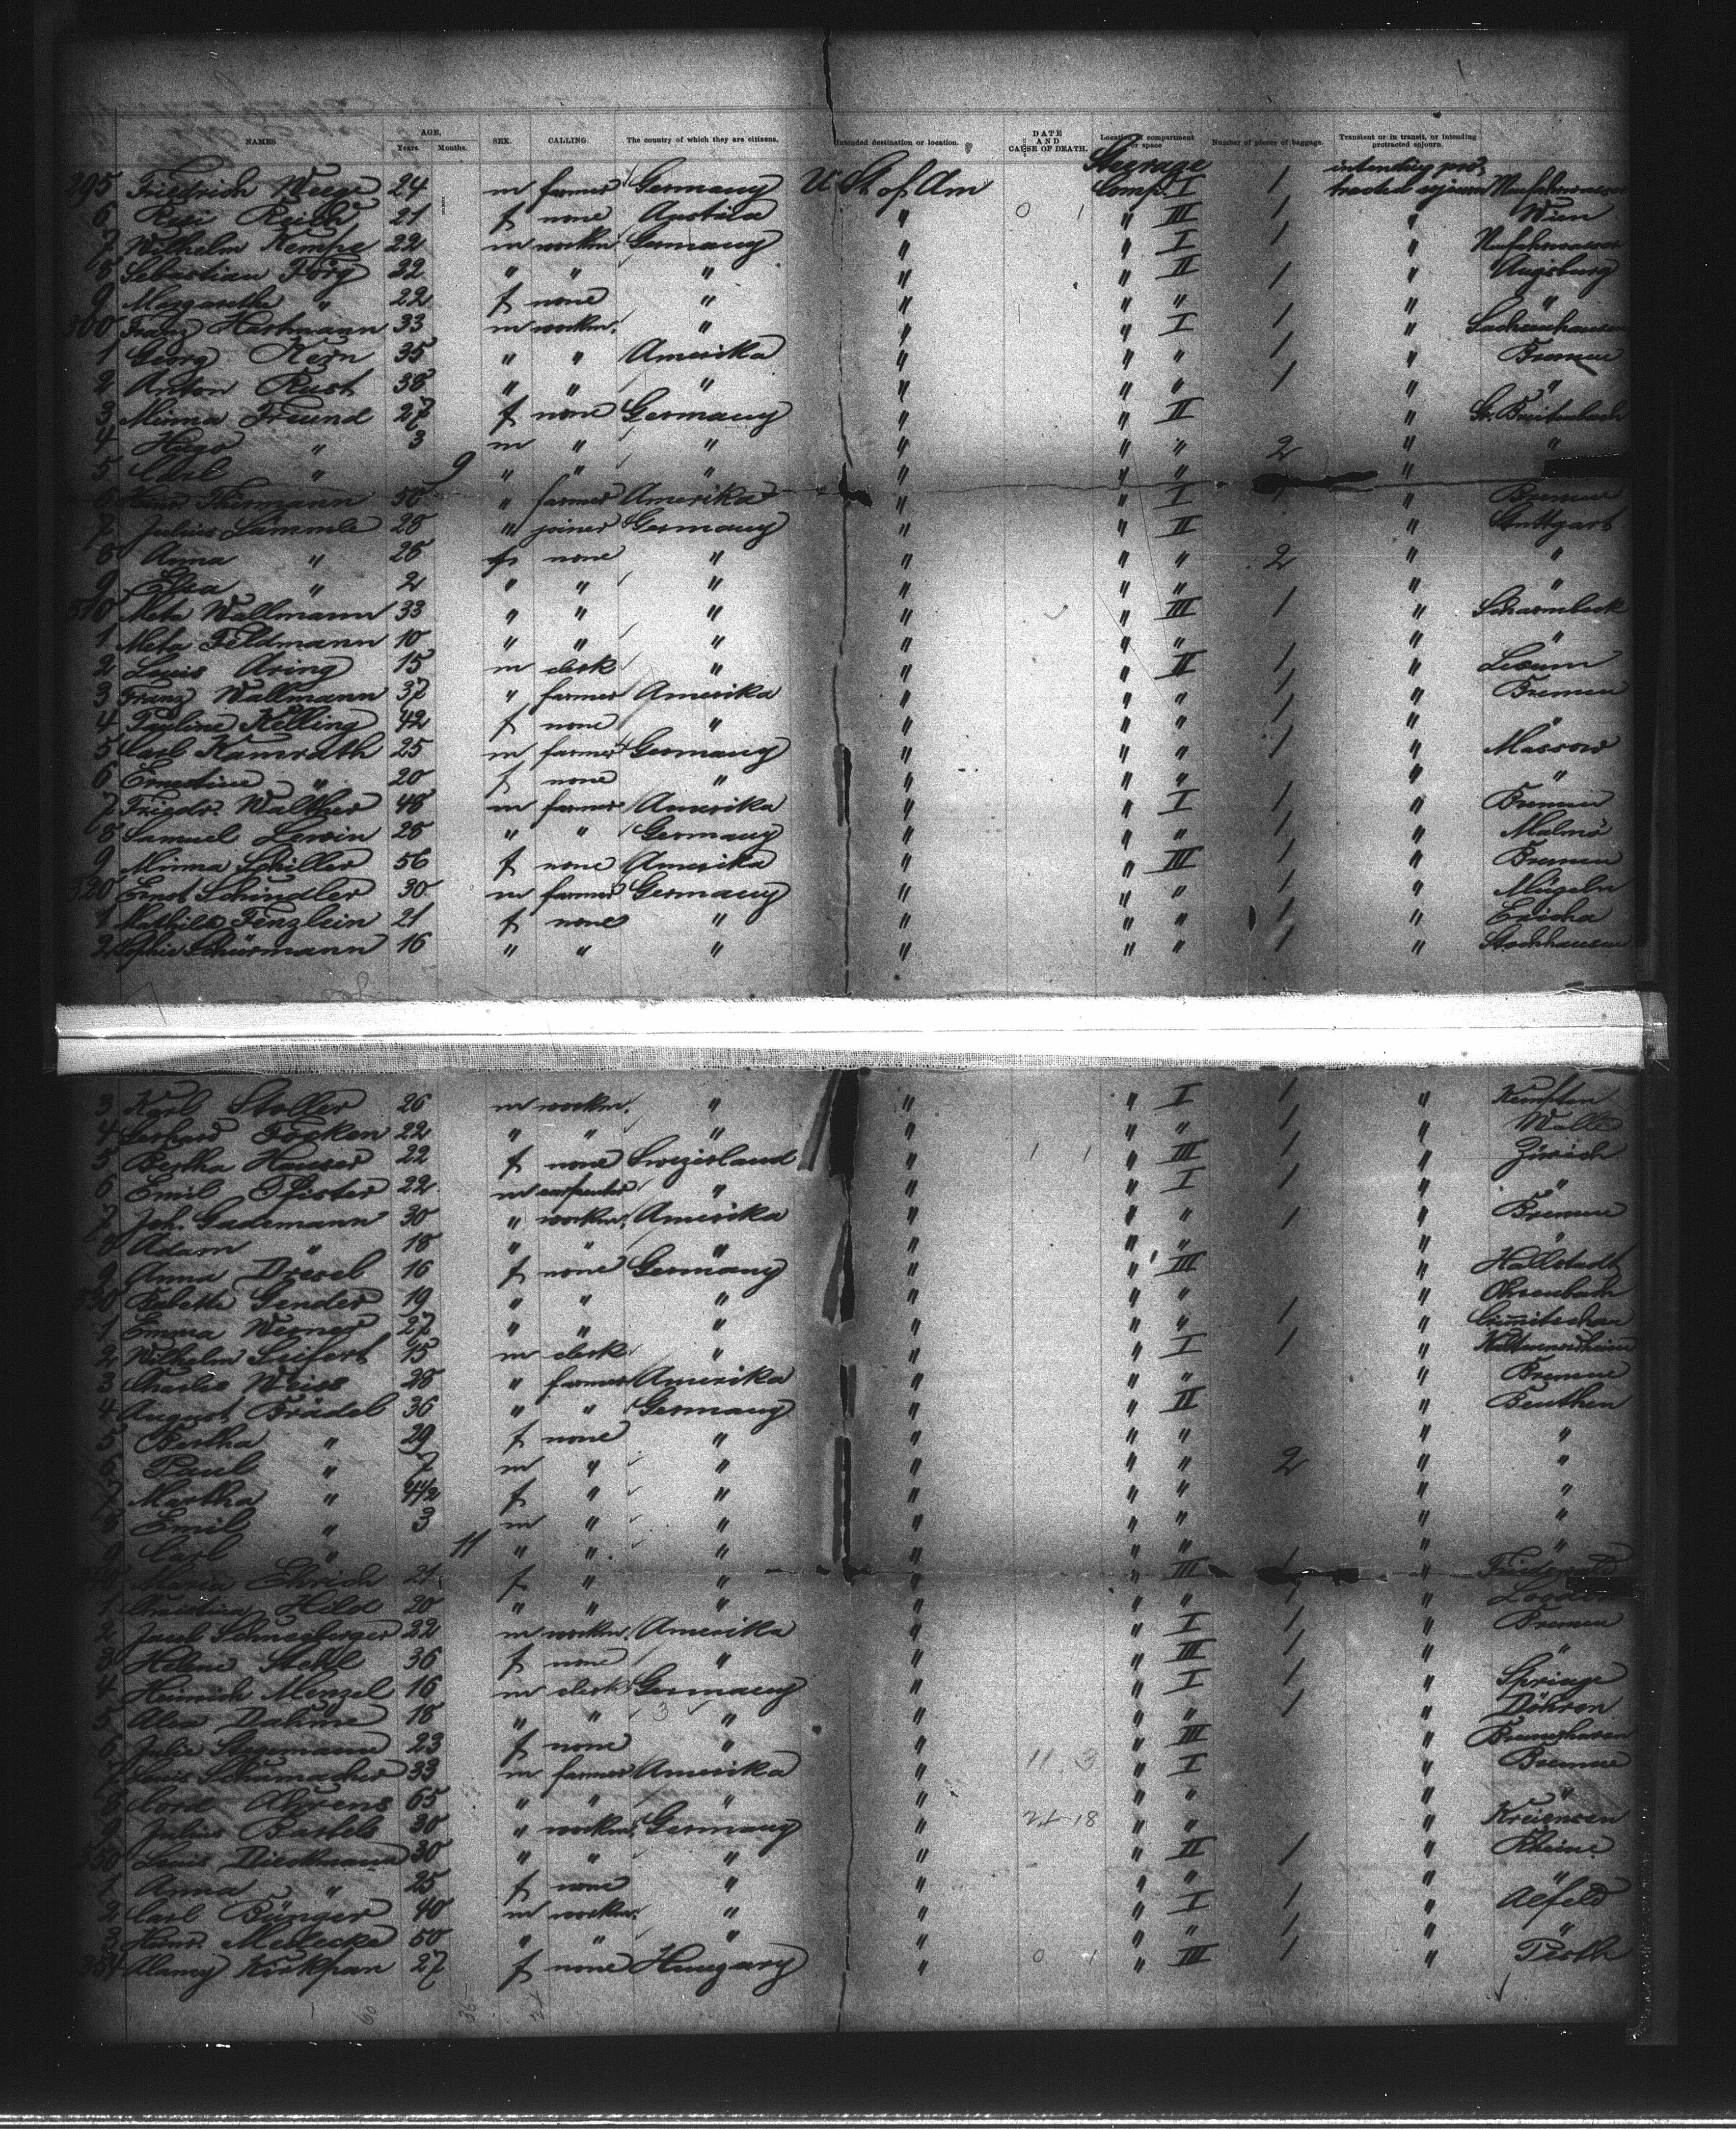 NAMES AGE, Years. Months. SEX. CALLING. The country of which they are citizens. Intended destination or location. DATE AND CAUSE OF DEATH. Location of compartment or space Number of pieces of baggage. Transient or in transit, or intending protracted sojourn.
Steerage intending pro-
295 Friedrich Weege 24 m farmer Germany U. St. of Am Comp. I 1 tracted sojourn Neufahrwasser
6 Resi Reich 21 f none Austria " 0 1 " III 1 " Wien
7 Wilhelm Kempe 22 m workm. Germany " " I 1 " Neufahrwasser
8 Sebastian Förg 22 " " " " " II 1 " Augsburg
9 Margaretha " 22 f none " " " " " "
500 Franz Hartmann 33 m workm. " " " I 1 " Sachsenhausen
1 Georg Kern 35 " " Amerika " " " 1 " Bremen
2 Anton Rust 38 " " " " " " 1 " "
3 Minna Freund 27 f none Germany " " II " Gr. Breitenbach
4 Hugo " 3 m " " " " " 2 " "
5 Carl " 9 " " " " " " "
6 Heinr. Thiermann 50 " farmer Amerika " " I " Bremen
7 Julius Lämmle 28 " joiner Germany " " II " Stuttgart
8 Anna " 26 f none " " " " 2 " "
9 Elsa " 2 " " " " " " " "
510 Meta Wallmann 33 " " " " " III 1 " Scharmbeck
1 Meta Feldmann 10 " " " " " " " "
2 Louis Aring 15 m clerk " " " II 1 " Lesum
3 Franz Wallmann 37 " farmer Amerika " " " 1 " Bremen
4 Pauline Kelling 42 f none " " " " 1 " "
5 Carl Kamrath 25 m farmer Germany " " " 1 " Massow
6 Ernestine " 20 f none " " " " " "
7 Friedr. Walther 48 m farmer Amerika " " I 1 " Bremen
8 Samuel Lewin 28 " " Germany " " " 1 " Malmö
9 Minna Schiller 56 f none Amerika " " III 1 " Bremen
520 Ernst Schindler 30 m farmer Germany " " " 1 " Mügeln
1 Mathilde Fenzlein 21 f none " " " " 1 "
2 Sophie Schürmann 16 " " " " " " 1 " Stockhausen
3 Karl Stoller 26 m workm. " " " I 1 " Kempten
4 Gerhard Focken 22 " " " " " " 1 " Walle
5 Bertha Hauser 22 f none Swizerland " 1 1 " III 1 " Zürich
6 Emil Pfister 22 m carpenter " " " I 1 " "
7 Joh. Gademann 30 " workm. Amerika " " " 1 " Bremen
8 Adam " 18 " " " " " " " "
9 Anna Dresel 16 f none Germany " " III " Hallstadt
530 Babette Gender 19 " " " " " " "
1 Emma Werner 27 " " " " " " 1 " Crimmitschau
2 Wilhelm Seifert 45 m clerk " " " I 1 "
3 Charles Weiss 28 " farmer Amerika " " " " Bremen
4 August Brädel 36 " " Germany " " II " Beuthen
5 Bertha " 29 f none " " " " " "
6 Paul " 7 m " " " " " 2 " "
7 Martha " 4 1/2 f " " " " " " "
8 Emil " 3 m " " " " " " "
9 Carl " 11 " " " " " " " "
540 Maria Ehrich 21 f " " " " III 1 "
1 Christine Hild 20 " " " " " " 1 "
2 Jacob Schneeberger 22 m workm. Amerika " " I 1 " Bremen
3 Helene Stekl 36 f none " " " III 1 " "
4 Heinrich Menzel 16 m clerk Germany " " I 1 " Springe
5 Alex Dahme 18 " " 3 " " " " 1 " Döhren
6 Julie Stegemann 23 f none " " " III "
7 Louis Schumacher 33 m farmer Amerika " 11 3 " I " Bremen
8 Cord Ahrens 65 " " " " " " " "
9 Julius Bartels 30 " workm. Germany " 24 18 " " " Kreiensen
550 Louis Dieckmann 30 " " " " " II 1 " Rheine
1 Anna " 25 f none " " " " " "
2 Carl Bünger 40 m workm. " " " I 1 " Alfeld
3 Heinr. Medecke 50 " " " " " " 1 " "
354 Kirkpan 27 f none Hungary " 0 1 " III 1 " Pesth